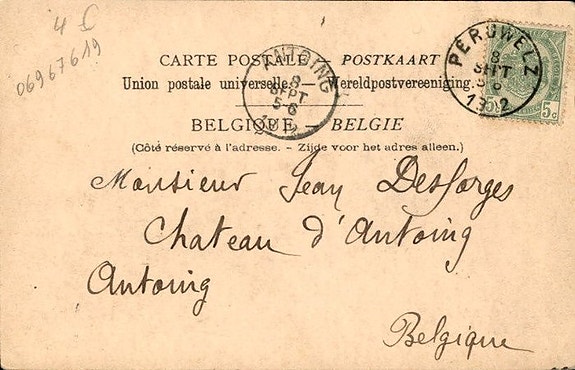 4 £
06967619
CARTE POSTALE — POSTKAART
Union postale universelle. — Wereldpostvereeniging.
BELGIQUE — BELGIE
(Côté réservé à l'adresse. – Zijde voor het adres alleen.)
ANTOING
8
SEPT
5-6
PERUWELZ
8
SEPT
1902
5c
Monsieur Jean Desforges
Chateau d'Antoing
Antoing
Belgique